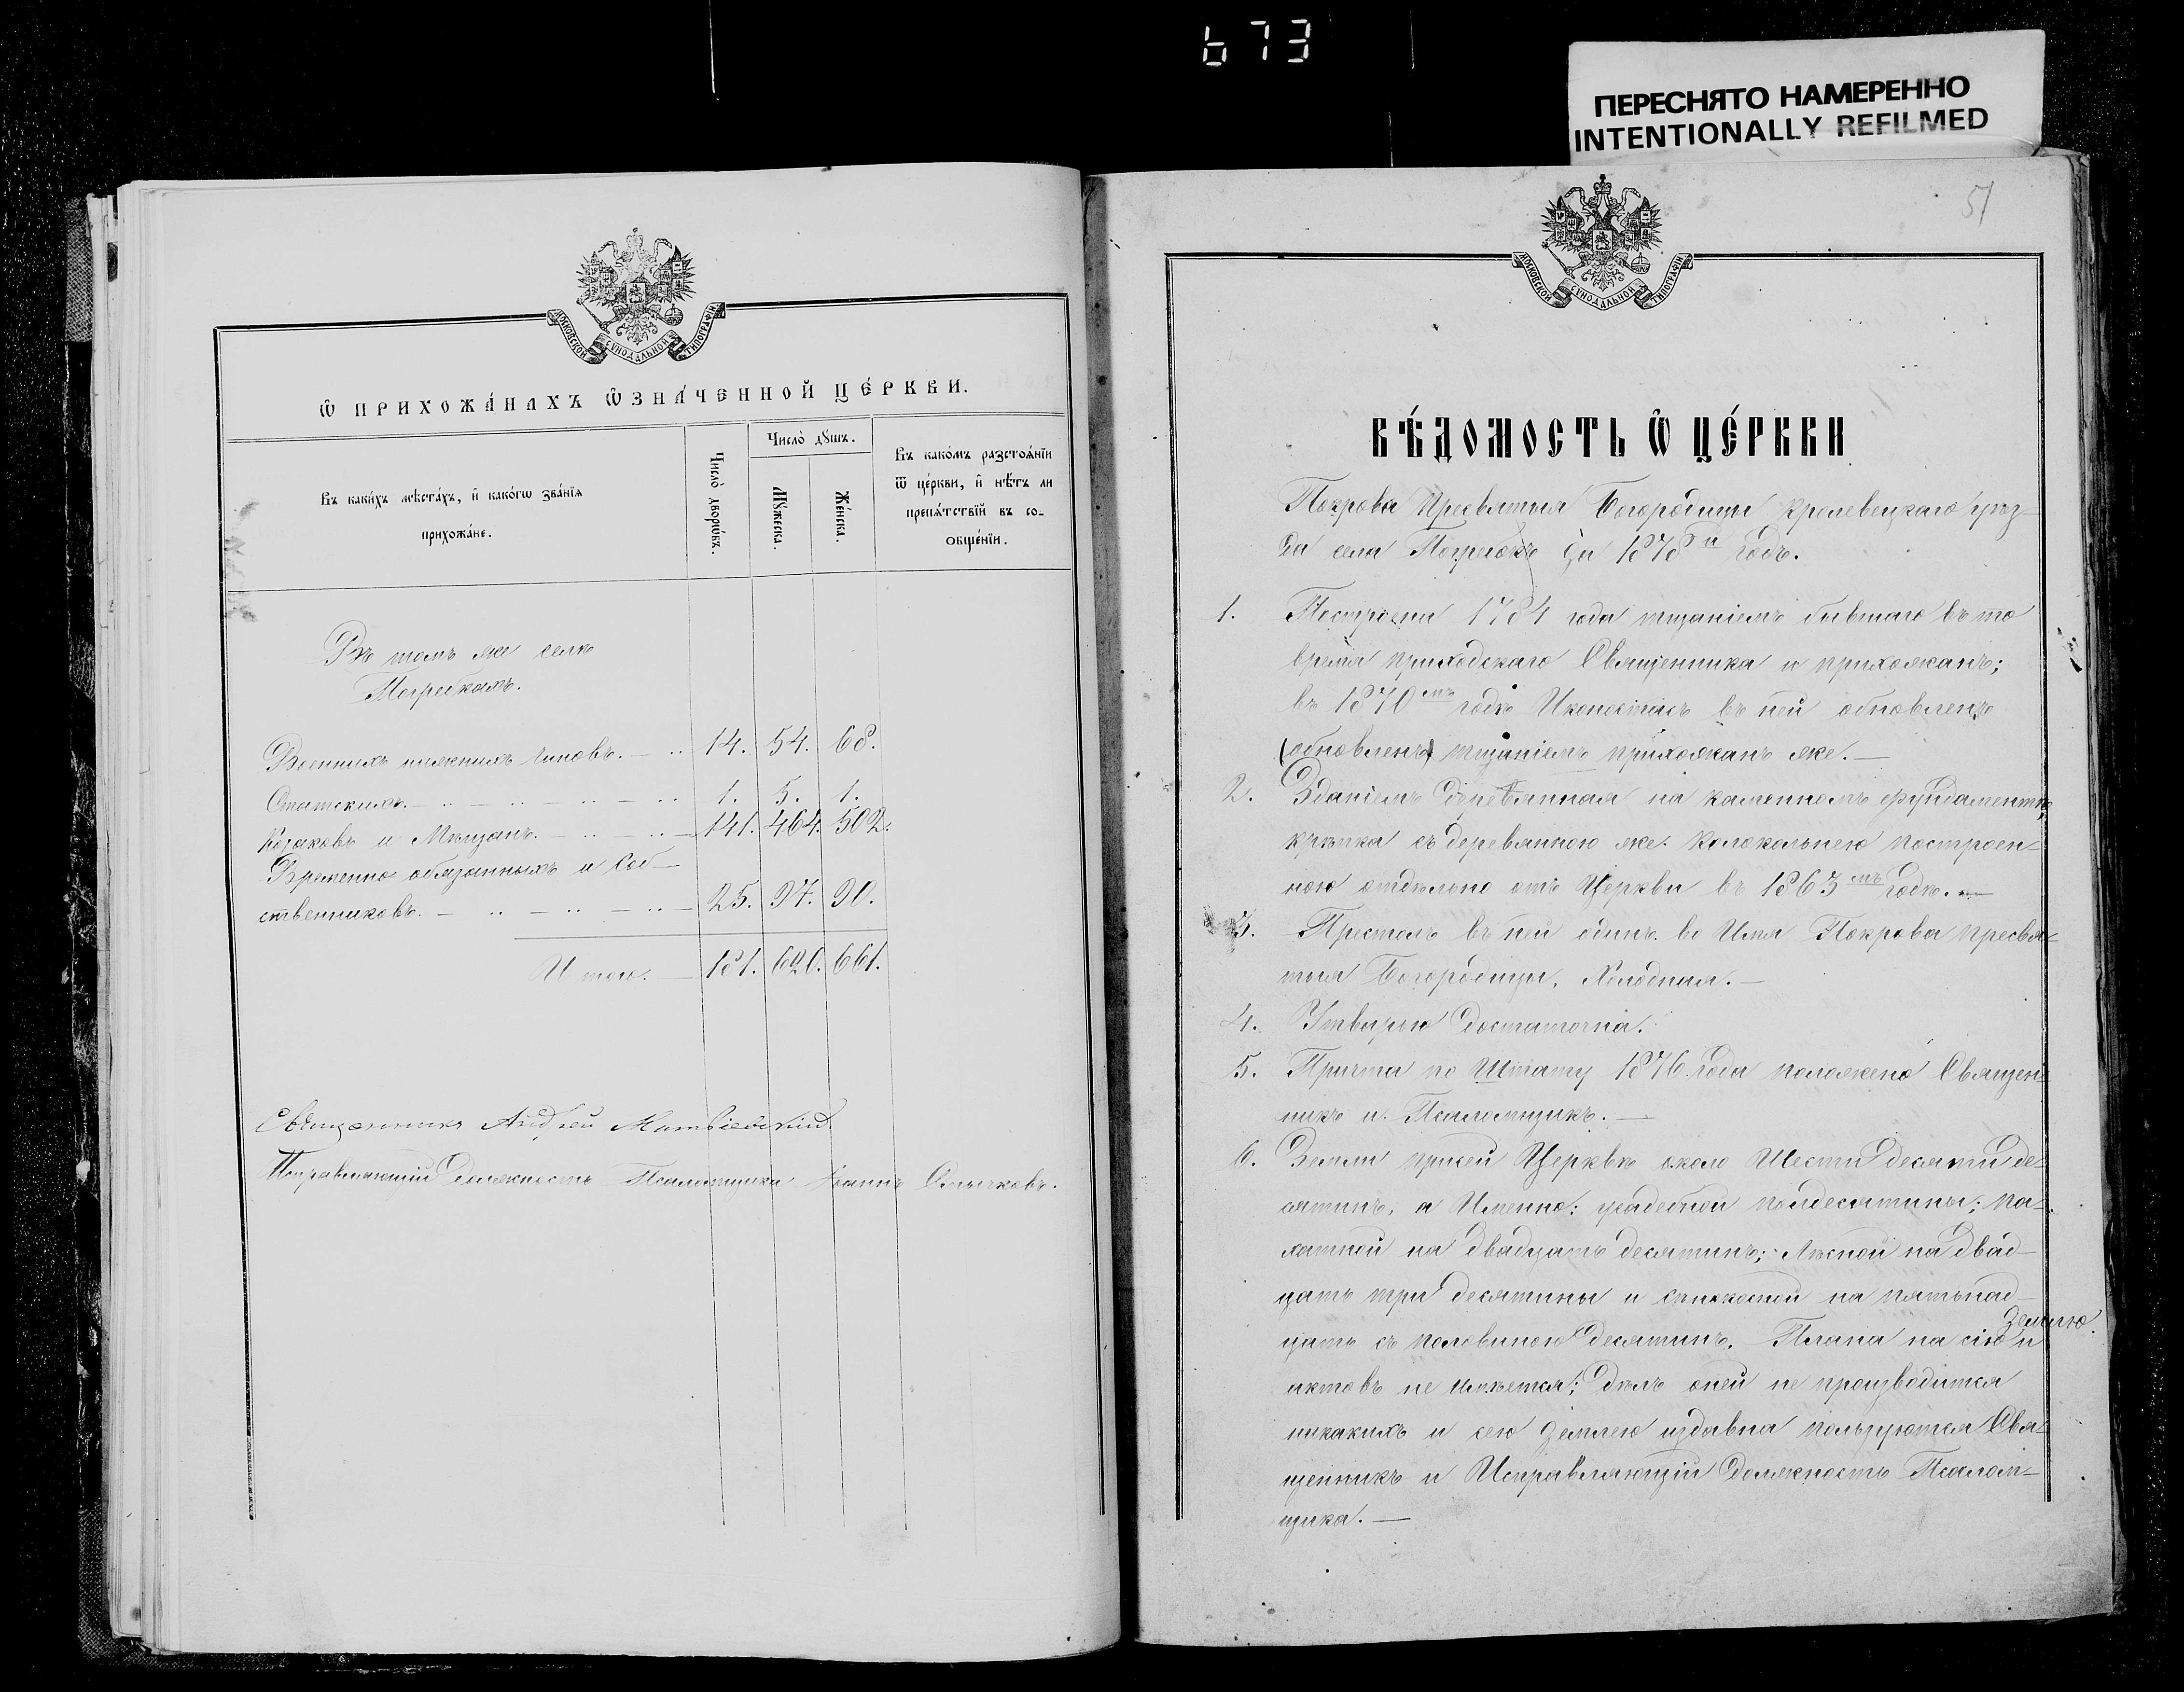 673
ПЕРЕСНЯТО НАМЕРЕННО
INTENTIONALLY REFILMED
МОСКОВСКОЙ СѴНОДАЛЬНОЙ ТИПОГРАФІИ
Ѡ ПРИХОЖА́НАХЪ Ѡ҆ЗНА́ЧЕННОЙ ЦЕ́РКВИ.
Въ каки́хъ мѣста́хъ, и҆ како́гѡ зва́нїѧ
прихожа́не.
Число̀ дворѡ́въ.
Число̀ дꙋ́шъ.
Мꙋ́жеска.
Же́нска.
Въ како́мъ разстоѧ́нїи
ѿ це́ркви, и҆ нѣ́тъ ли
препѧ́тствїй въ со-
ѻбще́нїи.
Въ томъ же селѣ
Погребкахъ.
Военныхъ нижнихъ чиновъ. — 14. 54. 68.
Статскихъ. — 1. 5. 1.
Козаковъ и Мѣщанъ. — 141. 464. 502.
Временно обязанныхъ и Соб-
ственниковъ. — 25. 97. 90.
Итого. — 181. 620. 661.
Священникъ Андрей Матвіевскій
Исправляющій должность Псаломщика Іоаннъ Смычковъ.
51
МОСКОВСКОЙ СѴНОДАЛЬНОЙ ТИПОГРАФІИ
ВѢ́ДОМОСТЬ Ѡ҆ ЦЕ́РКВИ
Покрова Пресвятыя Богородицы Кролевецкаго уѣз-
да села Погребокъ за 1878й годъ.
1. Построена 1784 года тщаніемъ бывшаго въ то
время приходскаго Священника и прихожанъ;
въ 1870мъ годѣ Иконостасъ въ ней обновленъ
(обновленъ) тщаніемъ прихожанъ же. —
2. Зданіемъ деревянная на каменномъ фундаментѣ,
крѣпка съ деревянною же колокольнею построен-
ною отдѣльно отъ Церкви въ 1863мъ годѣ. —
3. Престолъ въ ней одинъ во Имя Покрова Пресвя-
тыя Богородицы, Холодная. —
4. Утварью достаточна.
5. Причта по Штату 1876 года положено Священ-
никъ и Псаломщикъ. —
6. Земли при сей Церквѣ около Шести десяти де-
сятинъ, а Именно: усадебной полдесятины; па-
хатной на двадцать десятинъ; Лѣсной на двад-
цать три десятины и сѣнокосной на пятьнад-
цать съ половиною десятинъ. Плана на сію землю и
актовъ не имѣется; дѣлъ о ней не производится
никакихъ и сею землею издавна пользуются Свя-
щенникъ и Исправляющій должность Псалом-
щика. —